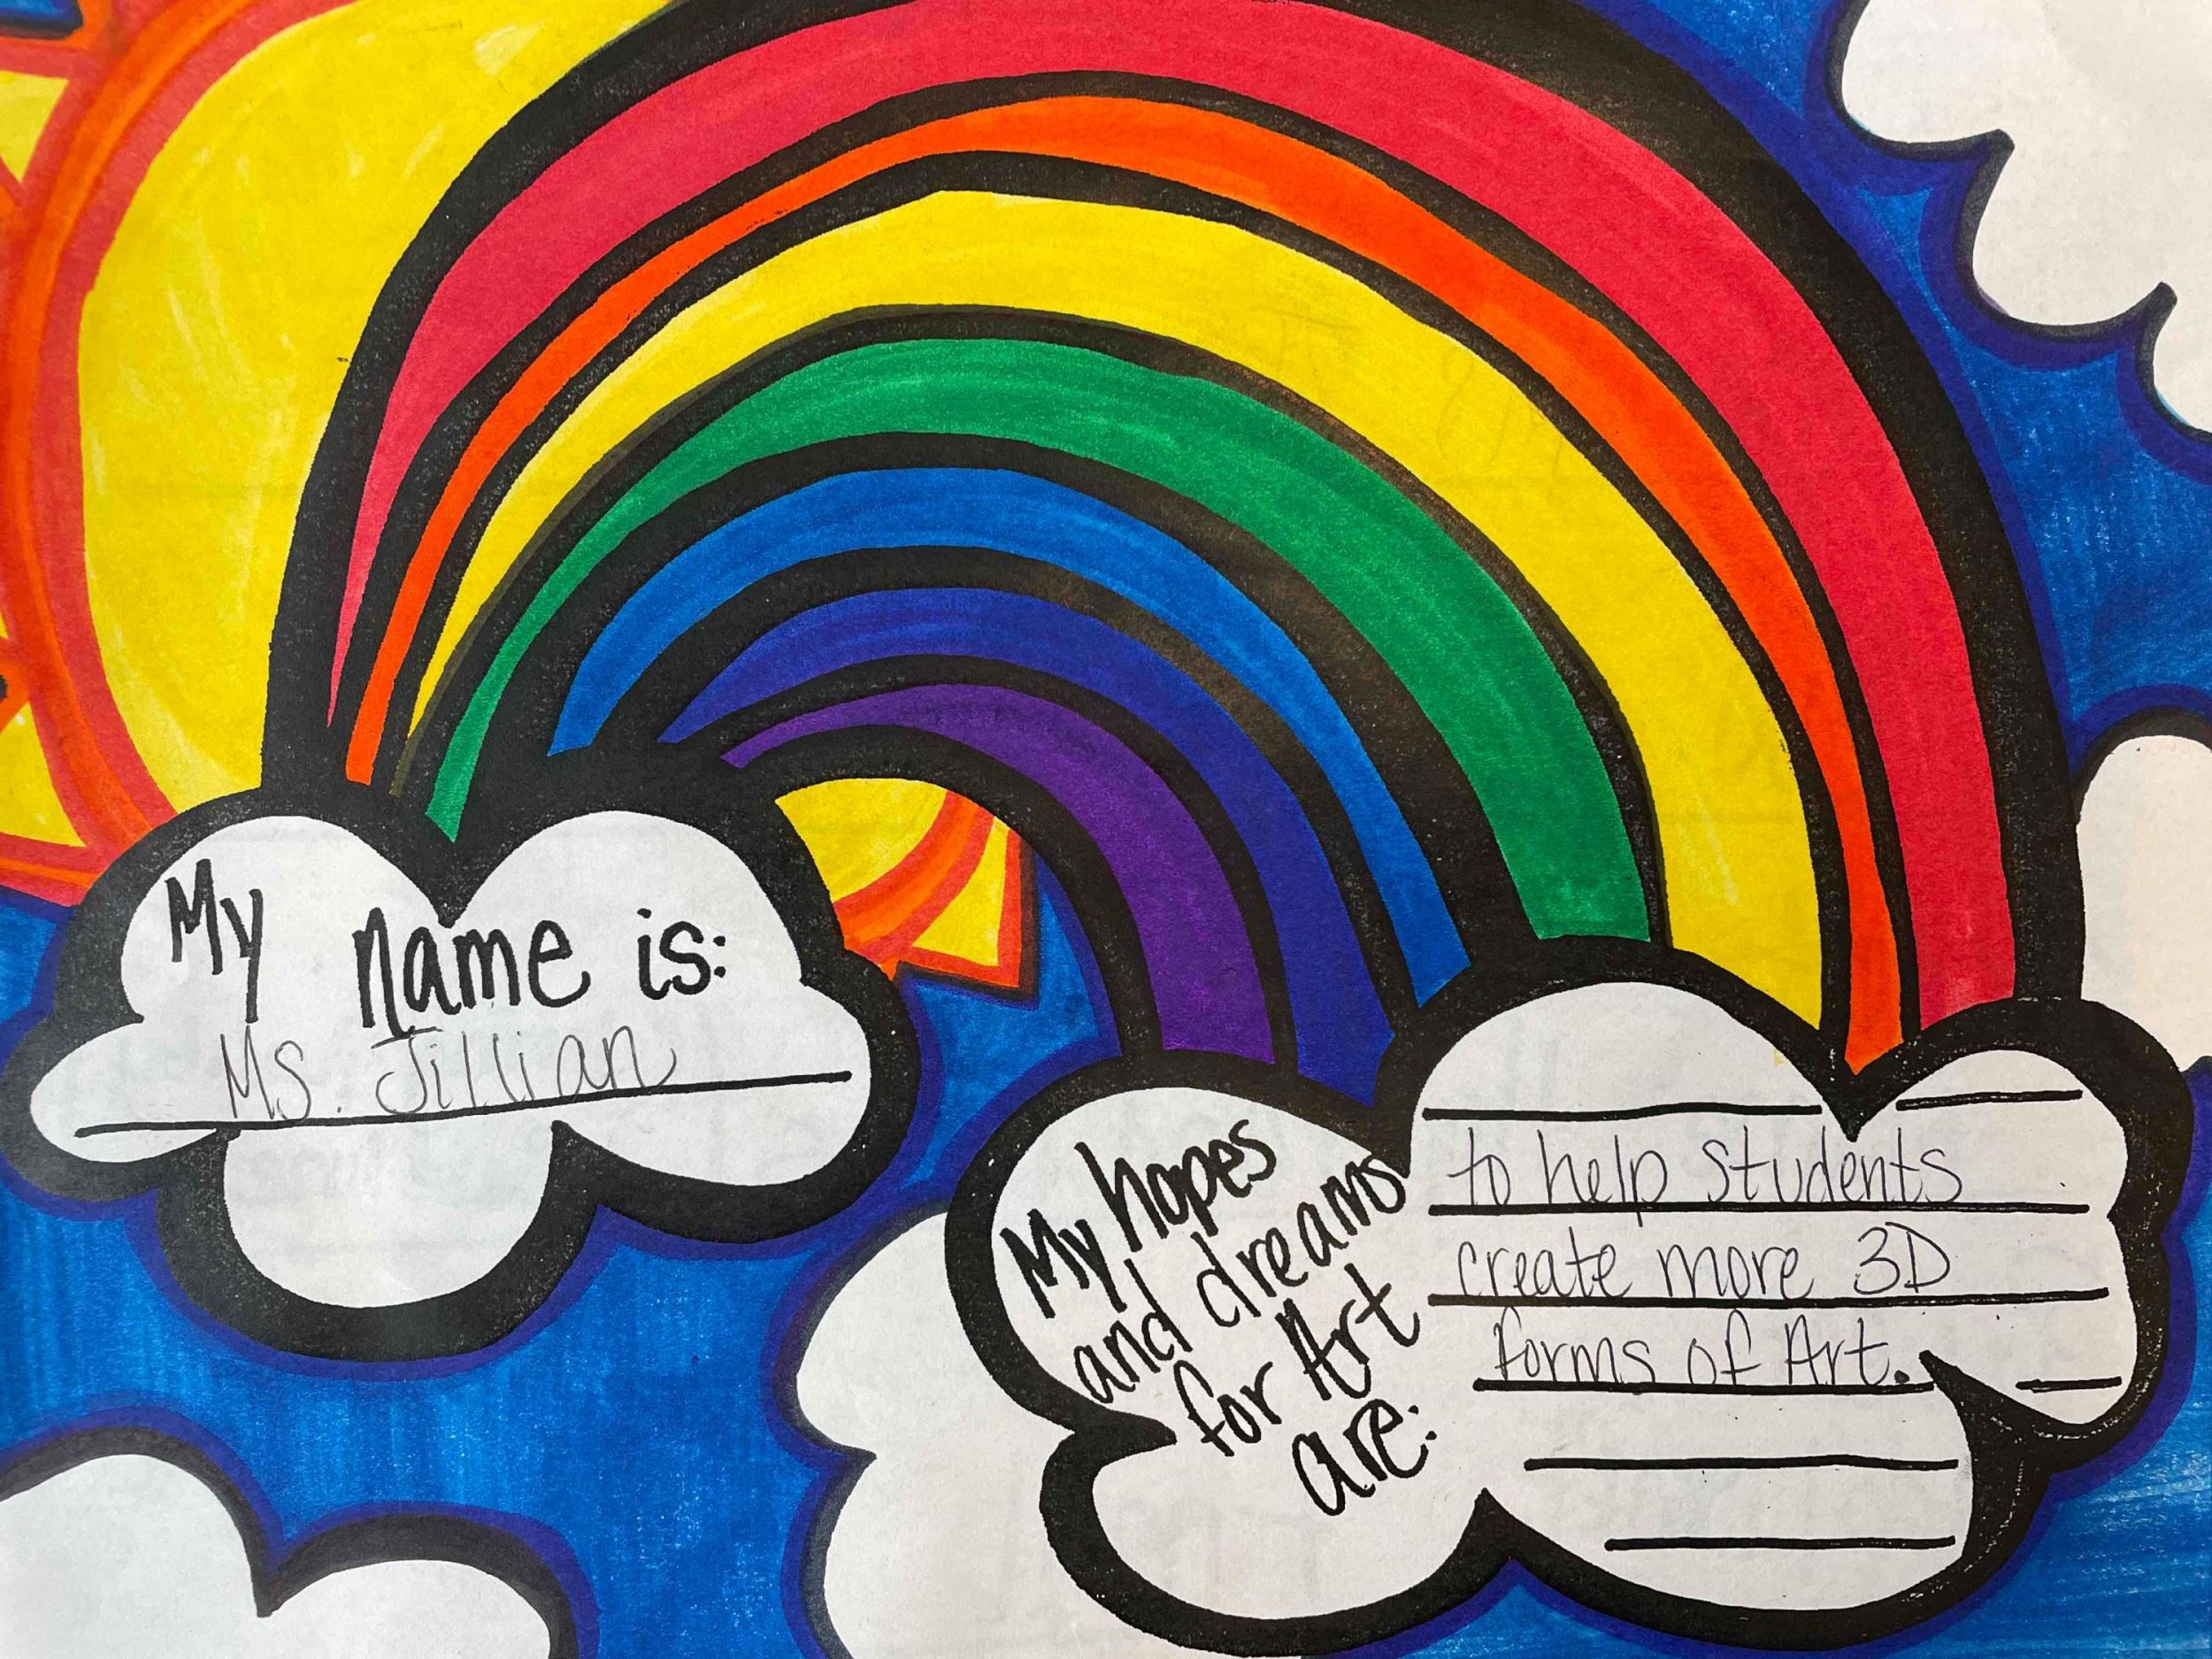 My name is:
Ms. Jillian
My hopes
and dreams
for Art
are:
to help students
create more 3D
forms of Art.